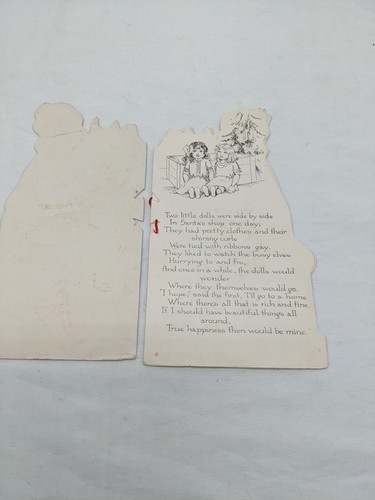 Two little dolls were side by side
In Santa's shop one day;
They had pretty clothes and their
shining curls
Were tied with ribbons gay.
They liked to watch the busy elves
Hurrying to and fro,
And once in a while, the dolls would
wonder
Where they themselves would go.
"I hope," said the first, "I'll go to a home
Where there's all that is rich and fine
If I should have beautiful things all
around,
True happiness then would be mine.